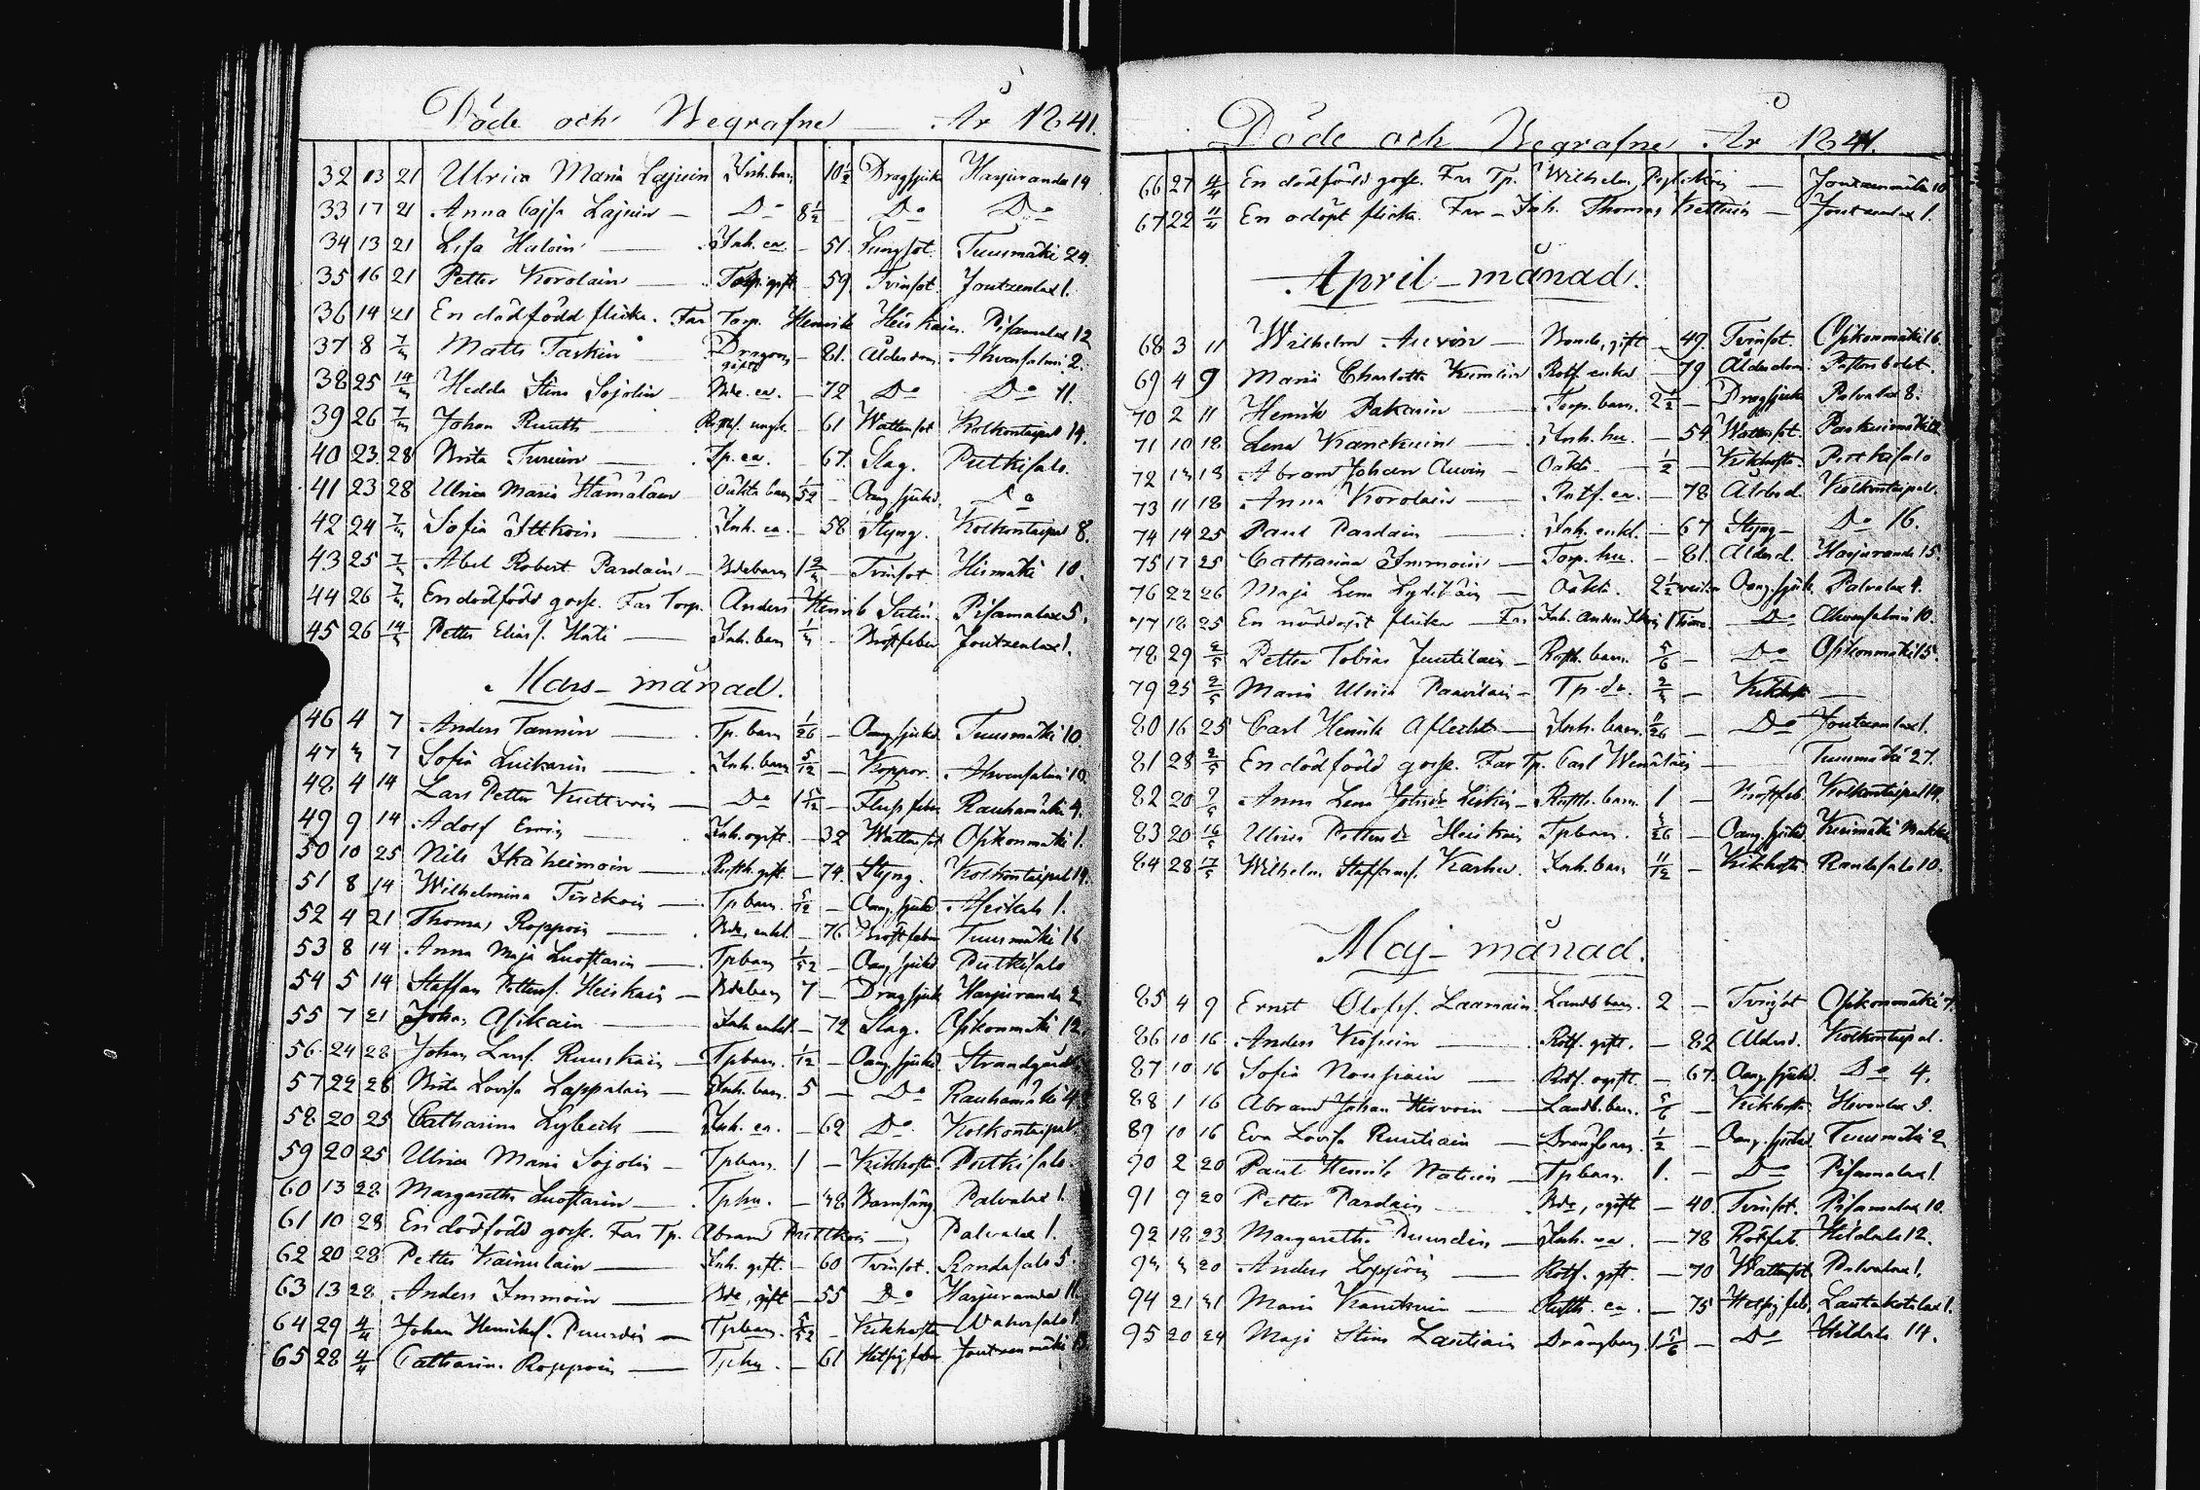 Döde och Begrafne — År 1841.
32 13 21 Ulrica Maria Lajuin Inh. barn 10½ Dragsjuka Harjuranda 14
33 17 21 Anna Cajsa Lajuin — Do 8½ Do Do
34 13 21 Lisa Halvin — Inh. ea. 51. Lungsot. Tuusmäki 24.
35 16 21 Petter Korolain — gift 59. Tvinsot. Joutzenlax 1.
36 14 21 En dödfödd flicka. Far Torp. Henrik Heiskain. Pisamalax 12
37 8 7/3 Matts Taskin Dragon gift — 81. Ålderdom. Ahvensalmi 2.
38 25 14/3 Hedda Stina Sojolin — Bde. ea. — 72 Do Do 11.
39 26 7/3 Johan Ruuth — 61 Wattusot Kolkontaipal 14.
40 23 28 Brita Turuin — Tp. ea. — 67. Slag. Putkisalo.
41 23 28 Ulrica Maria Hämäläin oäkta barn 1/52 — Oang. sjukd. Do
42 24 7/3 Sofia Ittkoin — Inh. ea. — 58 Styng. Kolkontaipal 8.
43 25 7/3 Abel Robert Pardain — Bdebarn 1 2/3 — Tvinsot Hirmäki 10.
44 26 7/3 En dödfödd gosse. Far Torp. Anders Henrik Pisamalax 5.
45 26 14/3 Petter Eliass. Häti — Inh. barn 1/3 — Bröstfeber Joutzenlax 1.
Mars-månad.
46 4 7 Anders Tannin — Tp. barn 1/26 — Oang. sjukd. Tuusmäki 10.
47 3 7 Sofia Luikarin — Inh. barn 5/12 — Koppor. Ahvensalmi 10.
48 4 14 Lars Petter Kuttvoin — Do 1 5/12 — feber Rauhamäki 4.
49 9 14 Adolf — Inh. ogift. — 32 Wattusot Osikonmäki 1.
50 10 25 Nils Ikäheimoin — Rusth. gift. — 74. Styng. Kolkontaipal 19.
51 8 14 Wilhelmina Tirckoin — Tp. barn. 5/12 — Oang. sjukd 1.
52 4 21 Thomas Roppoin — Bde, enkl. — 76 Bröstfeber Tuusmäki 16
53 8 14 Anna Maja Luostarin — Tpbarn 1/52 — Oang. sjukd Putkisalo
54 5 14 Staffan Petterss. Heiskain — Bdebarn 7 — Dragsjuk Harjuranda 2.
55 7 21 Johan Asikain — Inh. enkl. — 72 Slag. Osikonmäki 12.
56 24 28 Johan Larss. Ruuskain — Tpbarn. 1/12 — Oang. sjukd. Strandgård
57 22 28 Brita Lovisa Lappalain — Inh. barn. 5 — Do Rauhamäki 4.
58 20 25 Catharina Lybeck — Inh. ea. — 62 Do. Kolkontaipal.
59 20 25 Ulrica Maria Sojolin — Tpbarn. 1 — Kikhosta. Putkisalo.
60 13 28 Margaretha Luostarin — Tphu. — 38 Barnsäng Palvalax 1.
61 10 28 En dödfödd gosse. Far Tp. Abram — Palvalax 1.
62 20 28 Petter Kainulain — Inh. gift. — 60 Tvinsot. Randasalo 5.
63 13 28 Anders Immoin — Bde, gift — 55 Do Harjuranda 11.
64 29 4/4 Johan Henrikss. Puurdin — Tpbarn. 5/52 — Kikhosta Wahersalo 1.
65 28 4/4 Catharina Roppoin — Tphu — 61 Hetsig feber Joutzenmäki
Döde och Begrafne År 1841.
66 27 4/4 En dödfödd gosse. Far Tp. Wilhelm — Joutzenmäki 10
67 22 11/4 En odöpt flicka. Far — Inh. Thomas Kettuin — Joutzenlax 1.
April-månad.
68 3 11 Wilhelm Auvin — Bonde, gift — 49. Tvinsot. Osikonmäki 16.
69 4 9 Maria Charlotta Rotf. enka — 79 Ålderdom.
70 2 11 Henrik Pakarin — Torp. barn. 2½ — Dragsjuka Palvalax 8.
71 10 18 Lena Kanckuin — Inh. hu. — 54 Wattusot.
72 13 18 Abram Johan Auvin — Oäkta. ½ — Kikhosta. Putkisalo
73 11 18 Anna Korolain — Rotf. ea. — 78 Ålderd. Kolkontaipal.
74 14 25 Paul Pardain — Inh. enkl. — 67 Styng — Do 16.
75 17 25 Catharina Immoin — Torp. hu. — 81. Ålderd. Harjuranda 15.
76 22 26 Maja Lena — Oäkta. Oang. sjukd. Palvalax 4.
77 18 25 En nöddöpt flicka — Far Inh. Anders — Do Ahvensalmi 10.
78 29 2/5 Petter Tobias Juutilain — Rusth. barn. 5/6 — Do Osikonmäki 15.
79 25 2/5 Maria Ulrica Paavilain — Tp. do. 2/3 — Kikhosta —
80 16 25 Carl Henrik Aflecht — Inh. barn. — Do Joutzenlax 1.
81 28 2/5 En dödfödd gosse. Far Tp. Carl Wenäläin — Tuusmäki 27.
82 20 9/5 Anna Lena — Rusth. barn. 1 — Bröstfeb. Kolkontaipal 14.
83 20 16/5 Ulrica Petters dr Heiskain Tpbarn. — Oang. sjukd. Kerimäki
84 28 17/5 Wilhelm Staffanss. Karhu. Inh. barn 11/12 — Kikhosta Rantasalo 10.
Maj-månad.
85 4 9 Ernst Olofss. Laamain Landb. barn. 2 — Tvinsot Osikonmäki 7.
86 10 16 Anders — Rotf. gift. — 82 Ålderd. Kolkontaipal.
87 10 16 Sofia Nousiain — Rotf. ogift. — 67. Oang. sjukd. Do 4.
88 1 16 Abram Johan Hirvoin — Landb. barn. 5/6 — Kikhosta
89 10 16 Eva Lovisa Ruutiain — Drängbarn. ½ — Oang. sjukd. Tuusmäki 2.
90 2 20 Paul Henrik — Tpbarn. 1. — Do Pisamalax 1.
91 9 20 Petter Pardain Bde, ogift — 40. Tvinsot. Pisamalax 10.
92 18 23 Margaretha Puurdin — Inh. ea. — 78 Rötfeb. Hildala 12.
93 3 20 Anders Loppoin — Rotf. gift. — 70 Wattusot Palvalax 1.
94 21 31 Maria Kanckuin — Rusth. ea. — 75 Hetsig feb. Lautakotalax 1.
95 20 24 Maja Stina Lautiain Drängbarn 1 5/6 — Do Hildala 14.